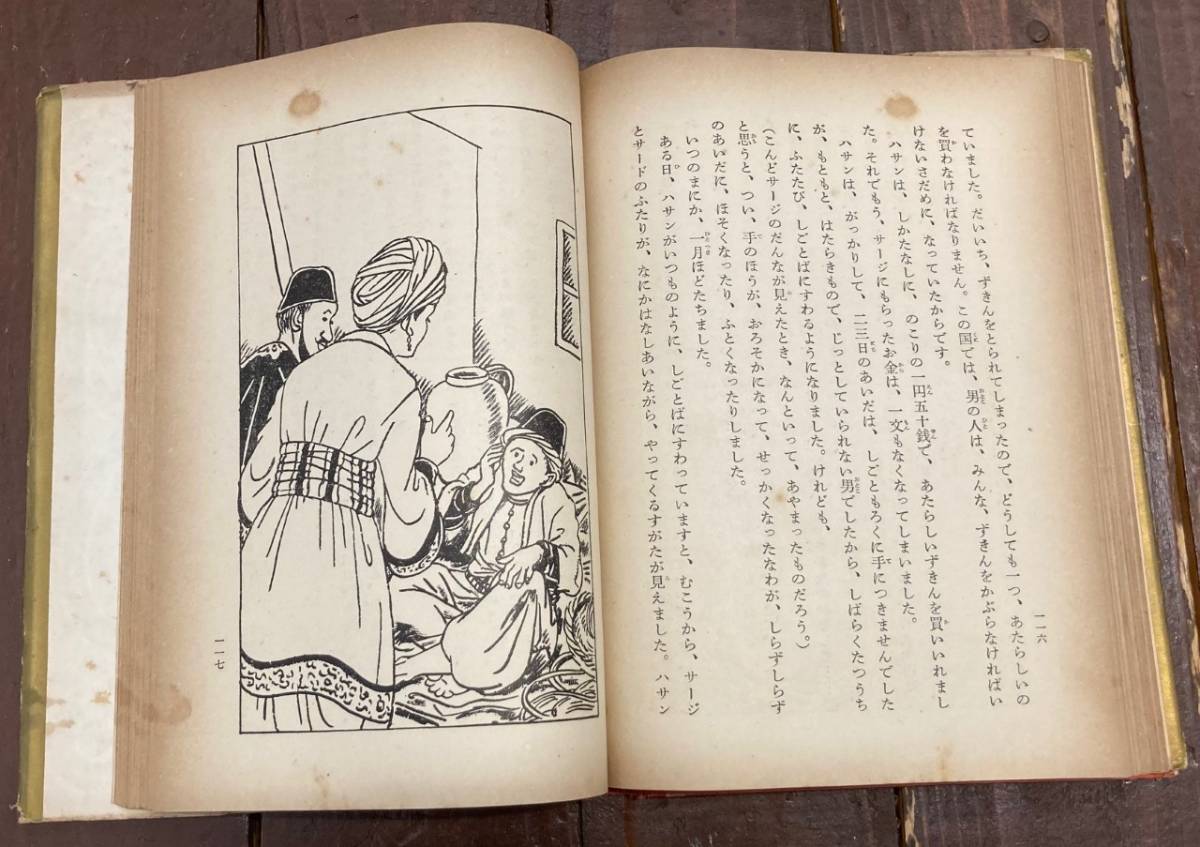 ていました。だいいち、ずきんをとられてしまったので、どうしても一つ、あたらしいの
を買わなければなりません。この国では、男の人は、みんな、ずきんをかぶらなければい
けないさだめに、なっていたからです。
ハサンは、しかたなしに、のこりの一円五十銭で、あたらしいずきんを買いいれまし
た。それでもう、サージにもらったお金は、一文もなくなってしまいました。
ハサンは、がっかりして、二三日のあいだは、しごともろくに手につきませんでした
が、もともと、はたらきもので、じっとしていられない男でしたから、しばらくたつうち
に、ふたたび、しごとばにすわるようになりました。けれども、
(こんどサージのだんなが見えたとき、なんといって、あやまったものだろう。)
と思うと、つい、手のほうが、おろそかになって、せっかくなったなわが、しらずしらず
のあいだに、ほそくなったり、ふとくなったりしました。
いつのまにか、一月ほどたちました。
ある日、ハサンがいつものように、しごとばにすわっていますと、むこうから、サージ
とサードのふたりが、なにかはなしあいながら、やってくるすがたが見えました。ハサン
一一六
一一七